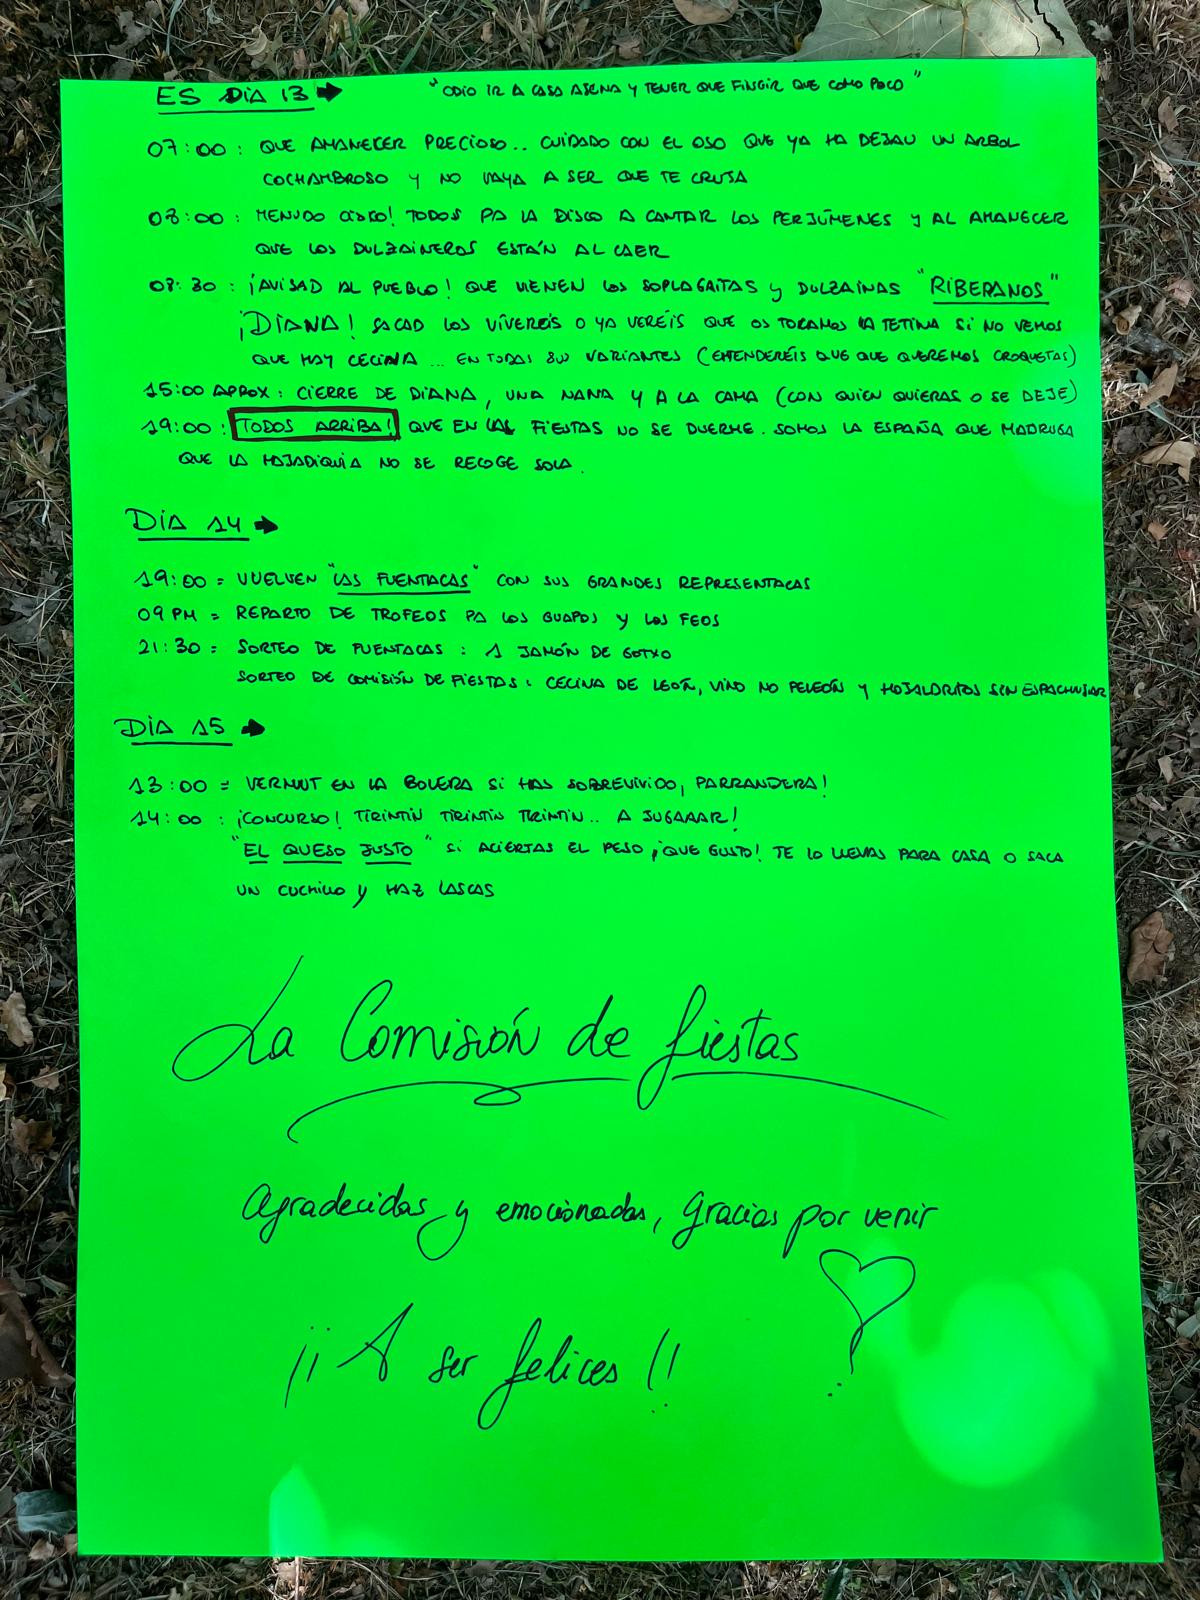 ES DIA 13 → "ODIO IR A CASA AJENA Y TENER QUE FINGIR QUE COMO POCO"
07:00 : QUE AMANECER PRECIOSO.. CUIDADO CON EL OSO QUE YA HA DEJAU UN ARBOL
COCHAMBROSO Y NO VAYA A SER QUE TE CRUJA
08:00 : MENUDO CISCO! TODOS PA LA DISCO A CANTAR LOS PERJÚMENES Y AL AMANECER
QUE LOS DULZAINEROS ESTÁN AL CAER
08:30 : ¡AVISAD AL PUEBLO! QUE VIENEN LOS SOPLAGAITAS Y DULZAINAS "RIBERANOS"
¡DIANA! SACAD LOS VÍVERES O YA VERÉIS QUE OS TOCAMOS LA TETINA SI NO VEMOS
QUE HAY CECINA ... EN TODAS SUS VARIANTES (ENTENDERÉIS QUE QUE QUEREMOS CROQUETAS)
15:00 APROX : CIERRE DE DIANA, UNA NANA Y A LA CAMA (CON QUIEN QUIERAS O SE DEJE)
19:00 : TODOS ARRIBA! QUE EN LAS FIESTAS NO SE DUERME. SOMOS LA ESPAÑA QUE MADRUGA
QUE LA HOJADIQUIA NO SE RECOGE SOLA.
DIA 14 →
19:00 = VUELVEN "LAS FUENTACAS" CON SUS GRANDES REPRESENTACAS
09 PM = REPARTO DE TROFEOS PA LOS GUAPOS Y LOS FEOS
21:30 = SORTEO DE FUENTACAS : 1 JAMÓN DE GOTXO
SORTEO DE COMISIÓN DE FIESTAS : CECINA DE LEÓN, VINO NO PELEÓN Y HOJALDRITOS SIN ESPACHURRAR
DIA 15 →
13:00 = VERMUT EN LA BOLERA SI HAS SOBREVIVIDO, PARRANDERA!
14:00 : ¡CONCURSO! TIRINTIN TIRINTIN TIRINTIN.. A JUGAAAR!
"EL QUESO JUSTO" SI ACIERTAS EL PESO ¡QUE GUSTO! TE LO LLEVAS PARA CASA O SACA
UN CUCHILLO Y HAZ LASCAS
La Comisión de fiestas
Agradecidas y emocionadas, gracias por venir
¡¡A ser felices!!